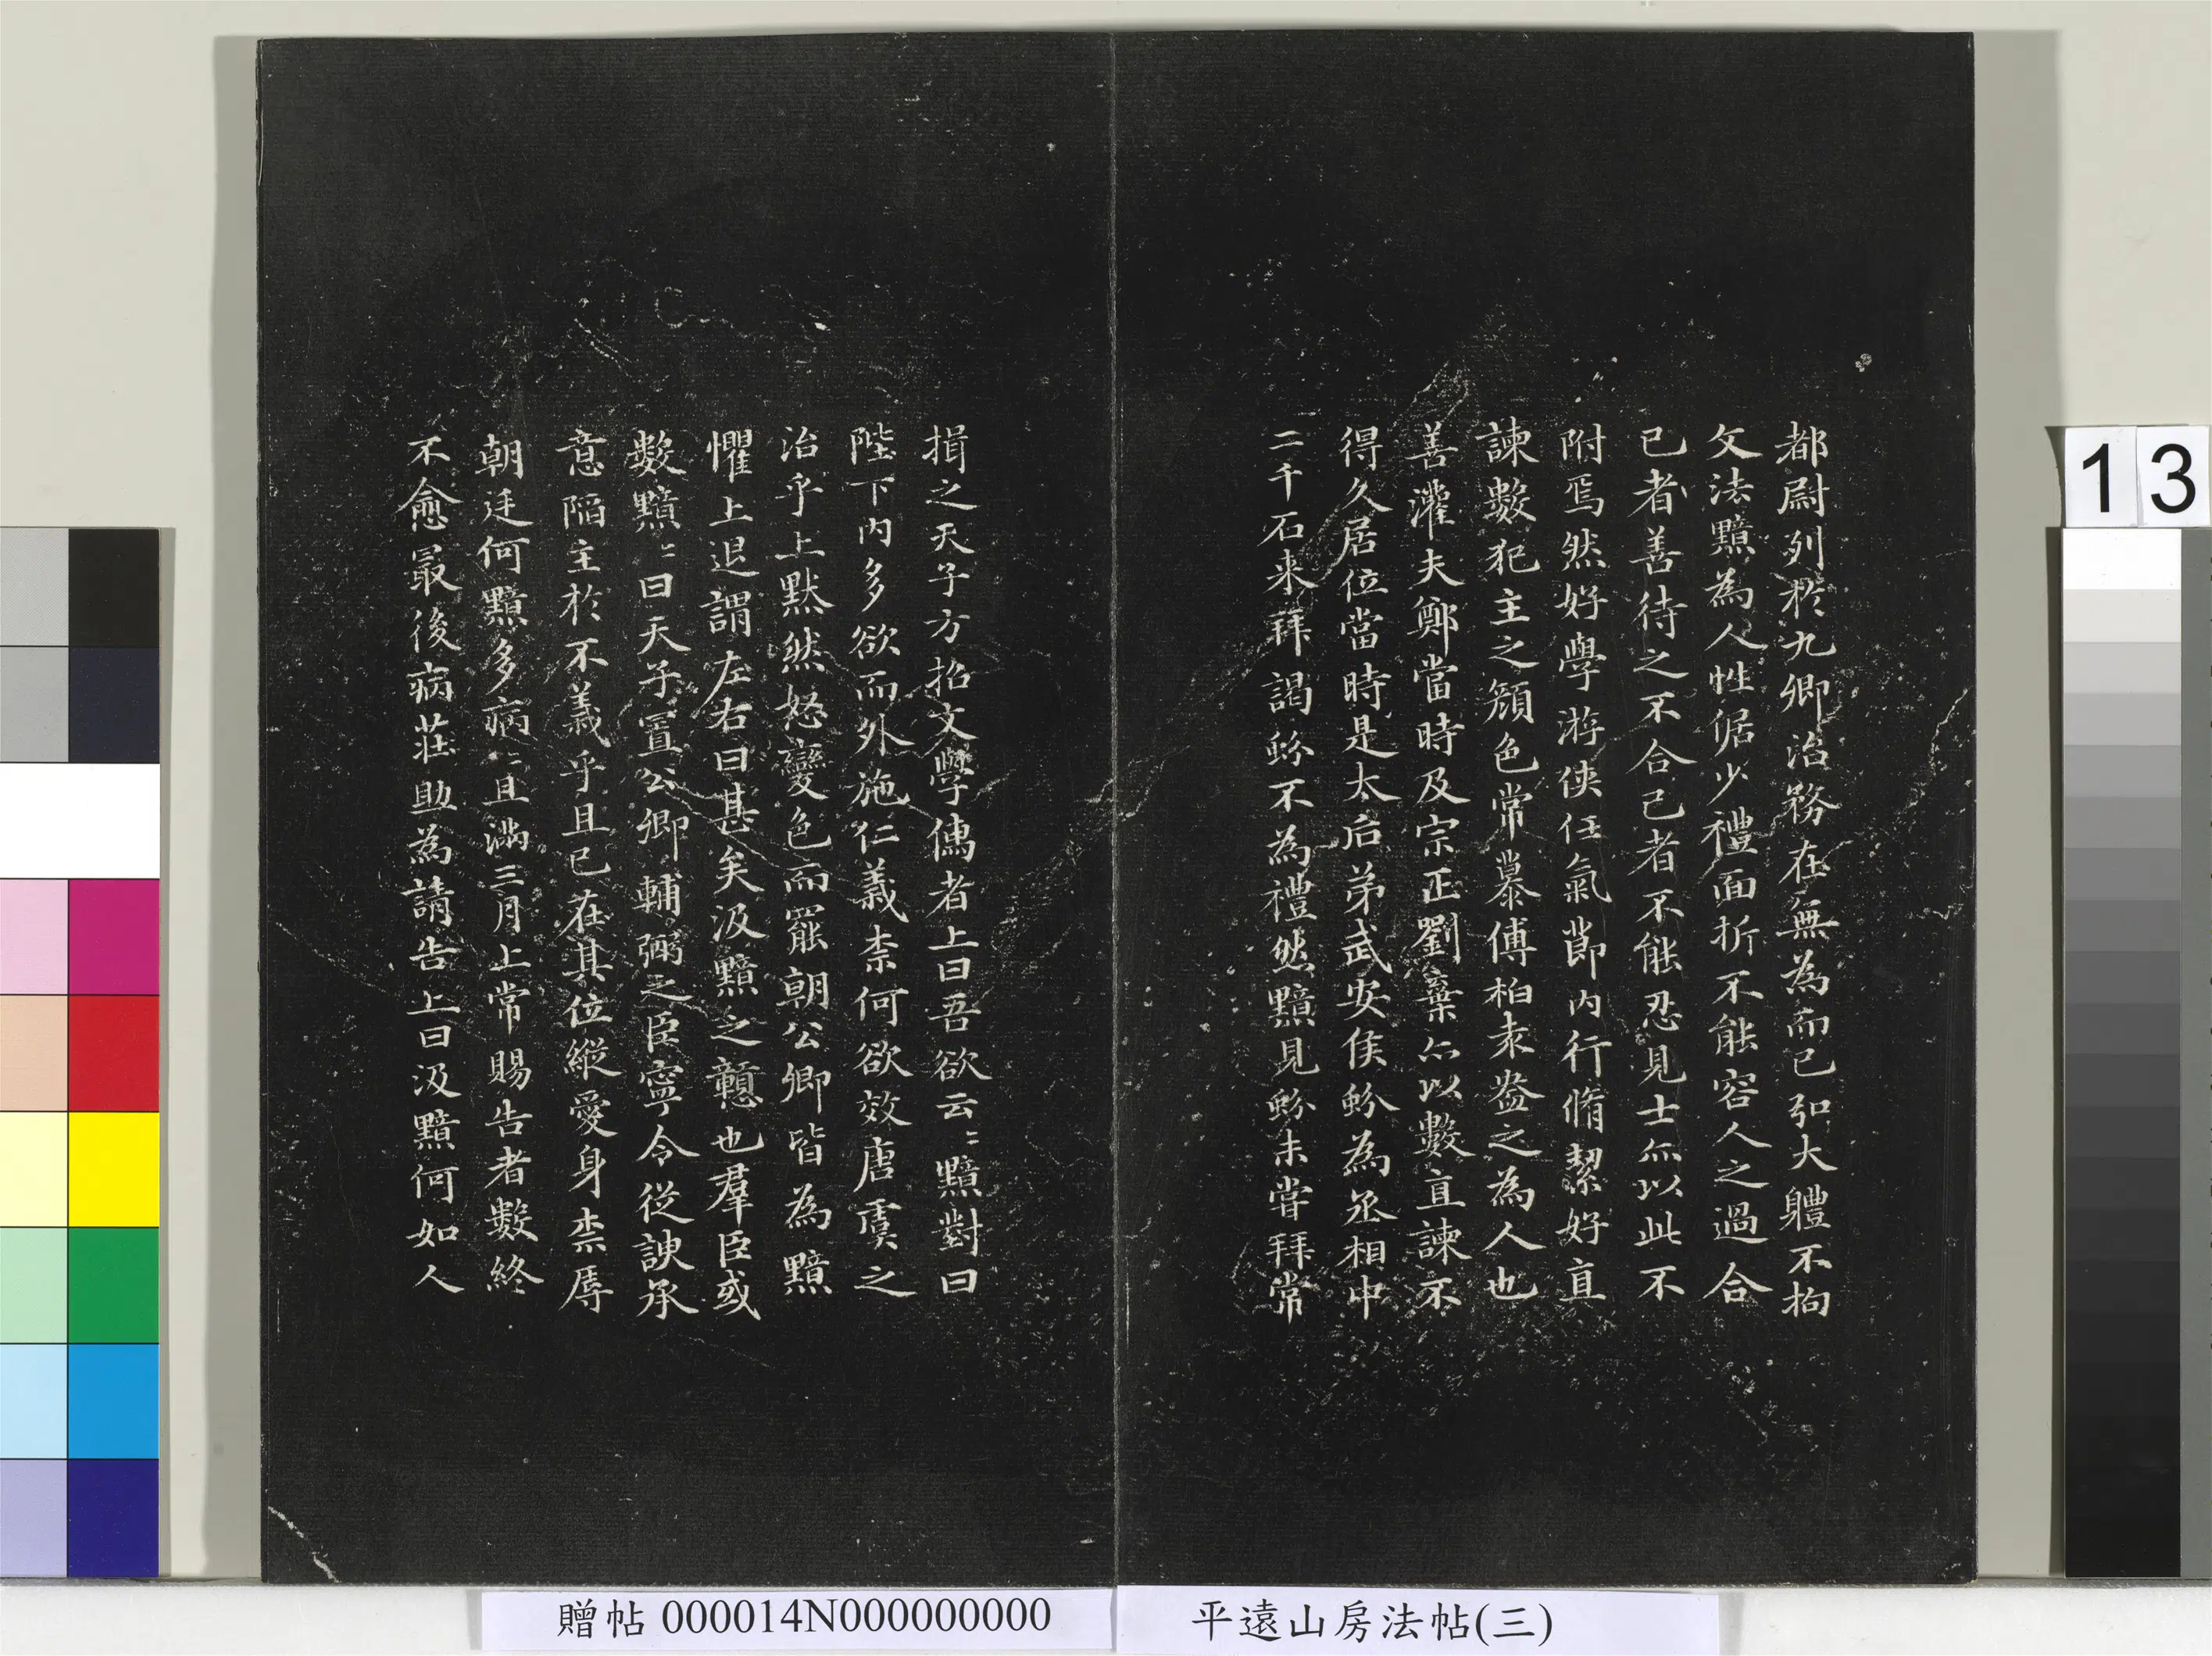 都尉列於九卿治務在無為而已弘大軆不拘
文法黯為人性倨少禮面折不能容人之過合
己者善待之不合己者不能忍見士亦以此不
附焉然好學游俠任氣節内行脩潔好直
諫數犯主之顔色常慕傅柏袁盎之為人也
善灌夫鄭當時及宗正劉棄亦以數直諫不
得久居位當時是太后弟武安侯蚡為丞相中
二千石来拜謁蚡不為禮然黯見蚡未嘗拜常
揖之天子方招文學儒者上曰吾欲云〻黯對曰
陛下内多欲而外施仁義柰何欲效唐虞之
治乎上黙然怒變色而罷朝公卿皆為黯
懼上退謂左右曰甚矣汲黯之戇也羣臣或
數黯〻曰天子置公卿輔弼之臣寧令從諛承
意陷主於不義乎且已在其位縱愛身柰辱
朝廷何黯多病〻且滿三月上常賜告者數終
不愈最後病莊助為請告上曰汲黯何如人
13
贈帖 000014N000000000
平遠山房法帖(三)